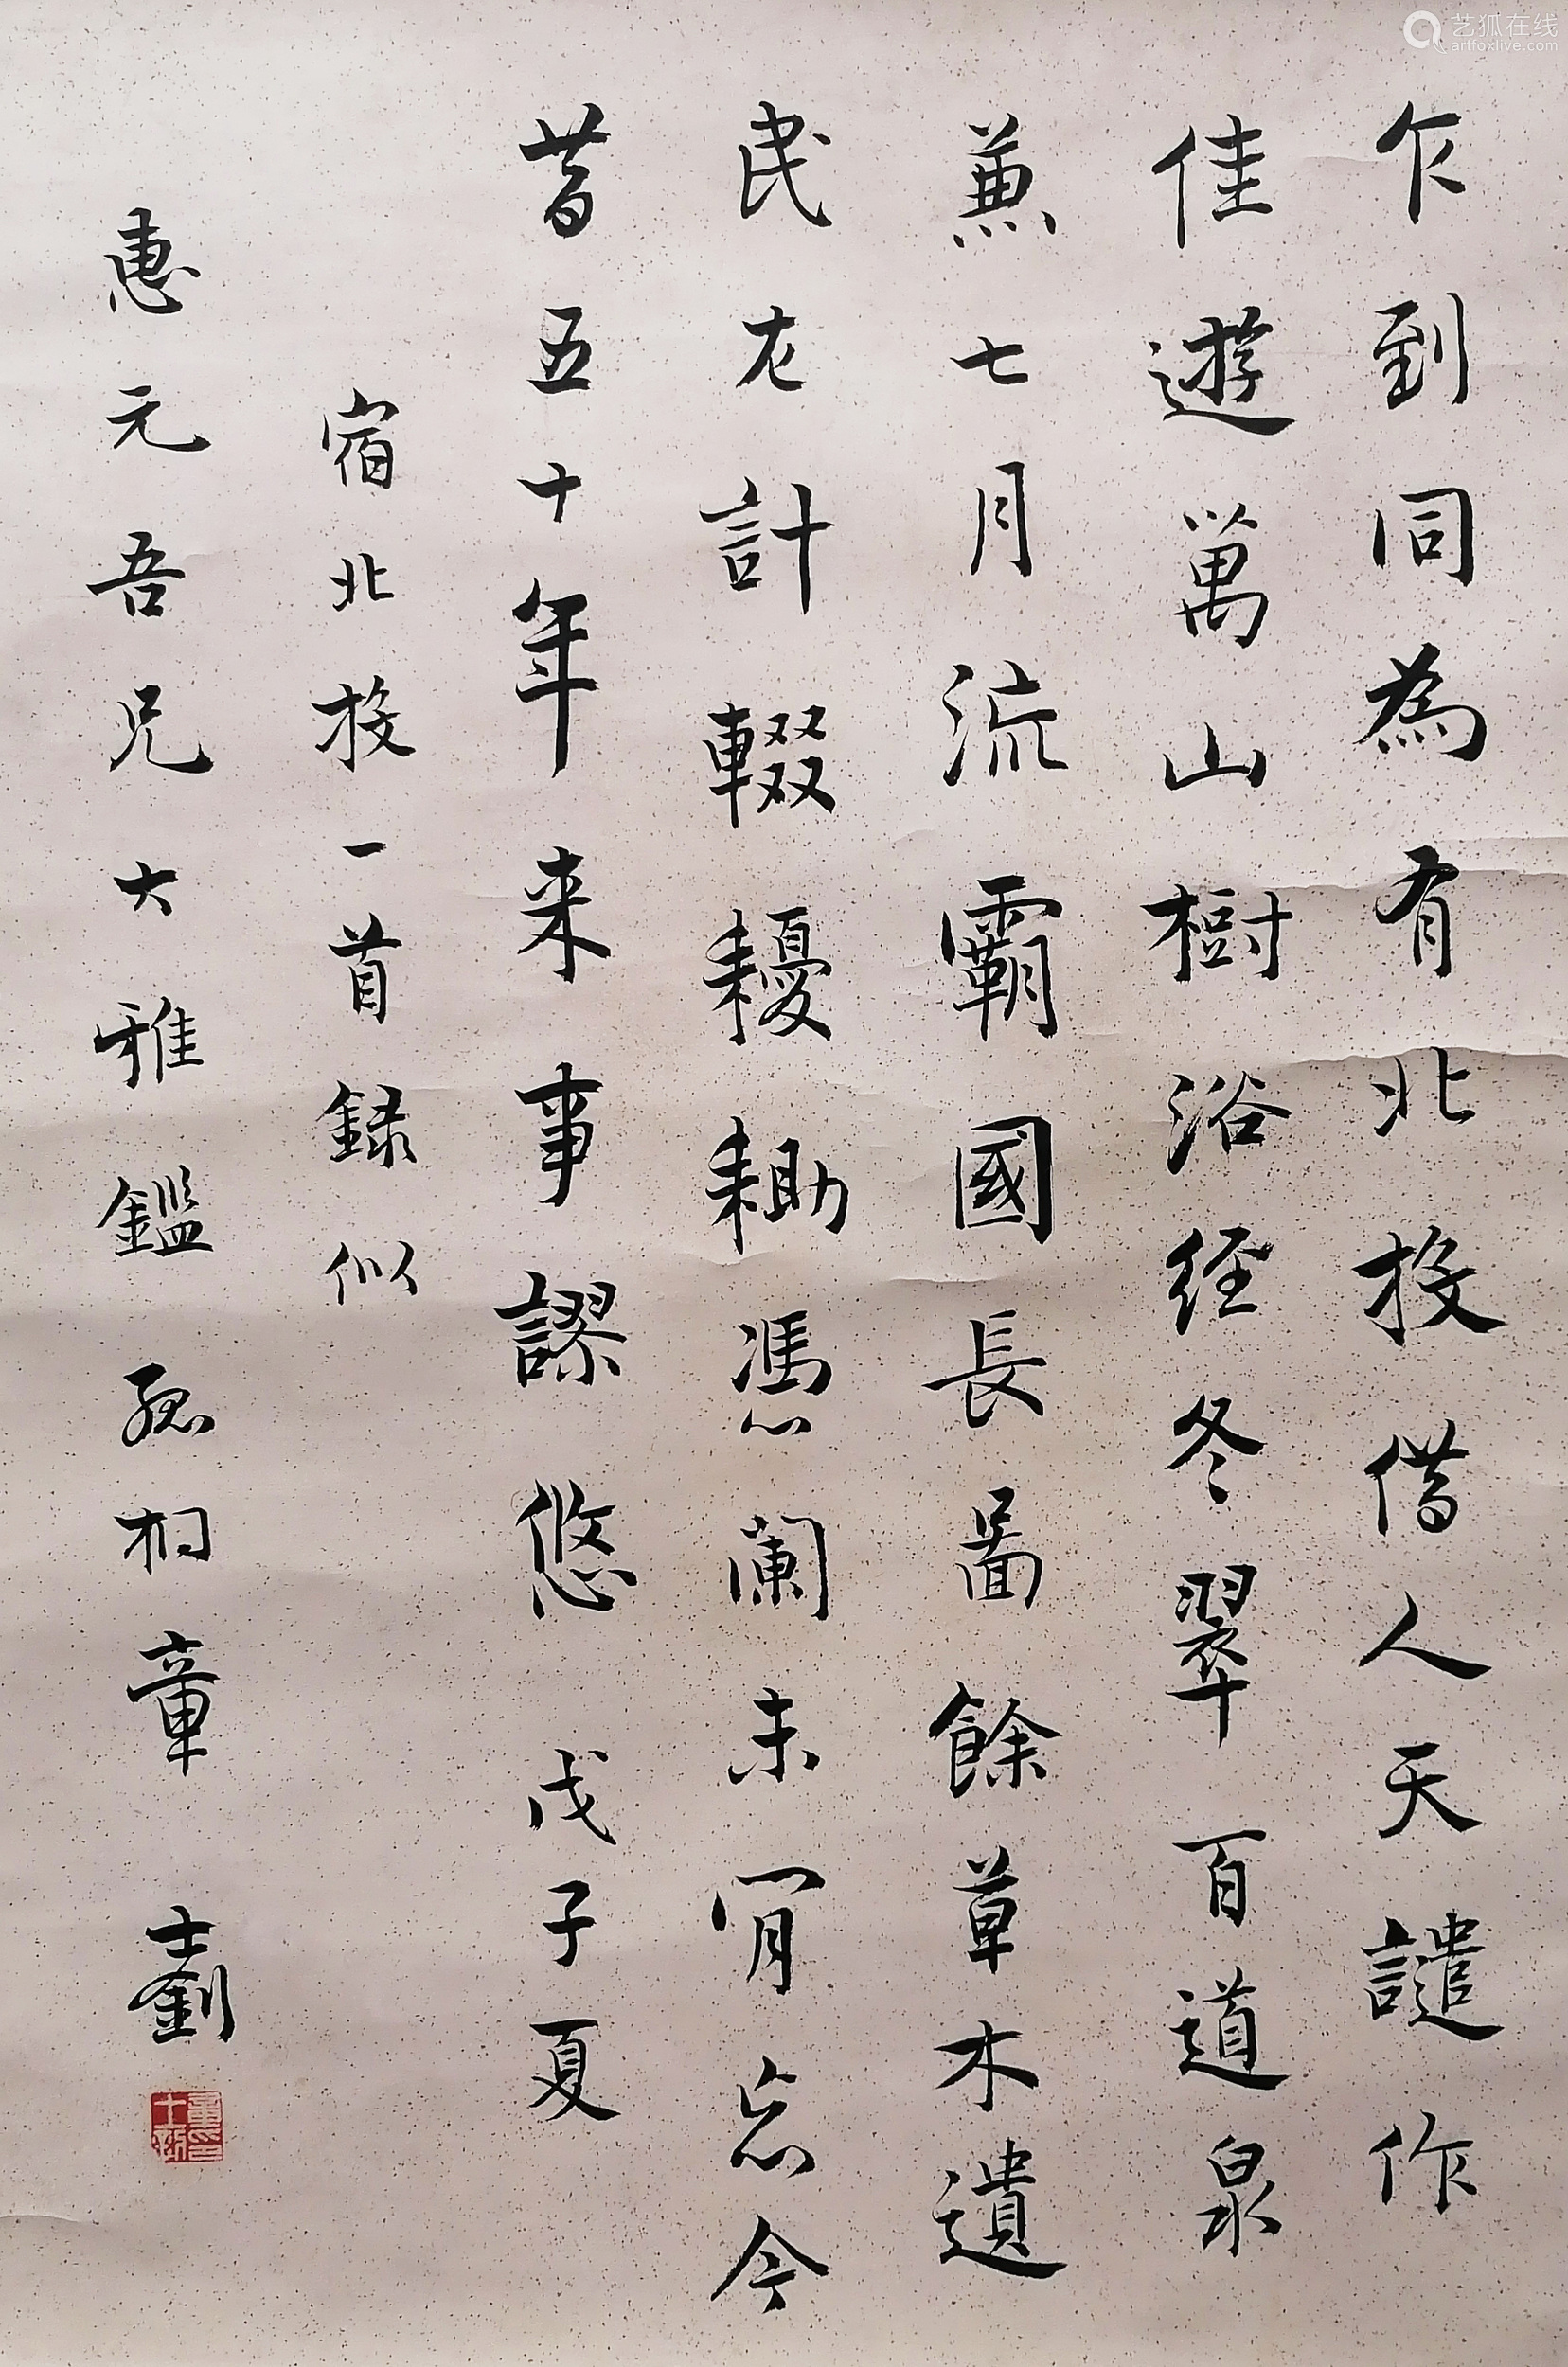 乍到同為有北投借人天譴作
佳遊萬山樹浴經冬翠百道泉
兼七月流霸國長啚餘草木遺
民左計輟耰耡憑闌未肎忘今
昔五十年来事謬悠 戊子夏
宿北投一首録似
惠元吾兄大雅鑑 孤桐章 士釗
艺狐在线
artfoxlive.com